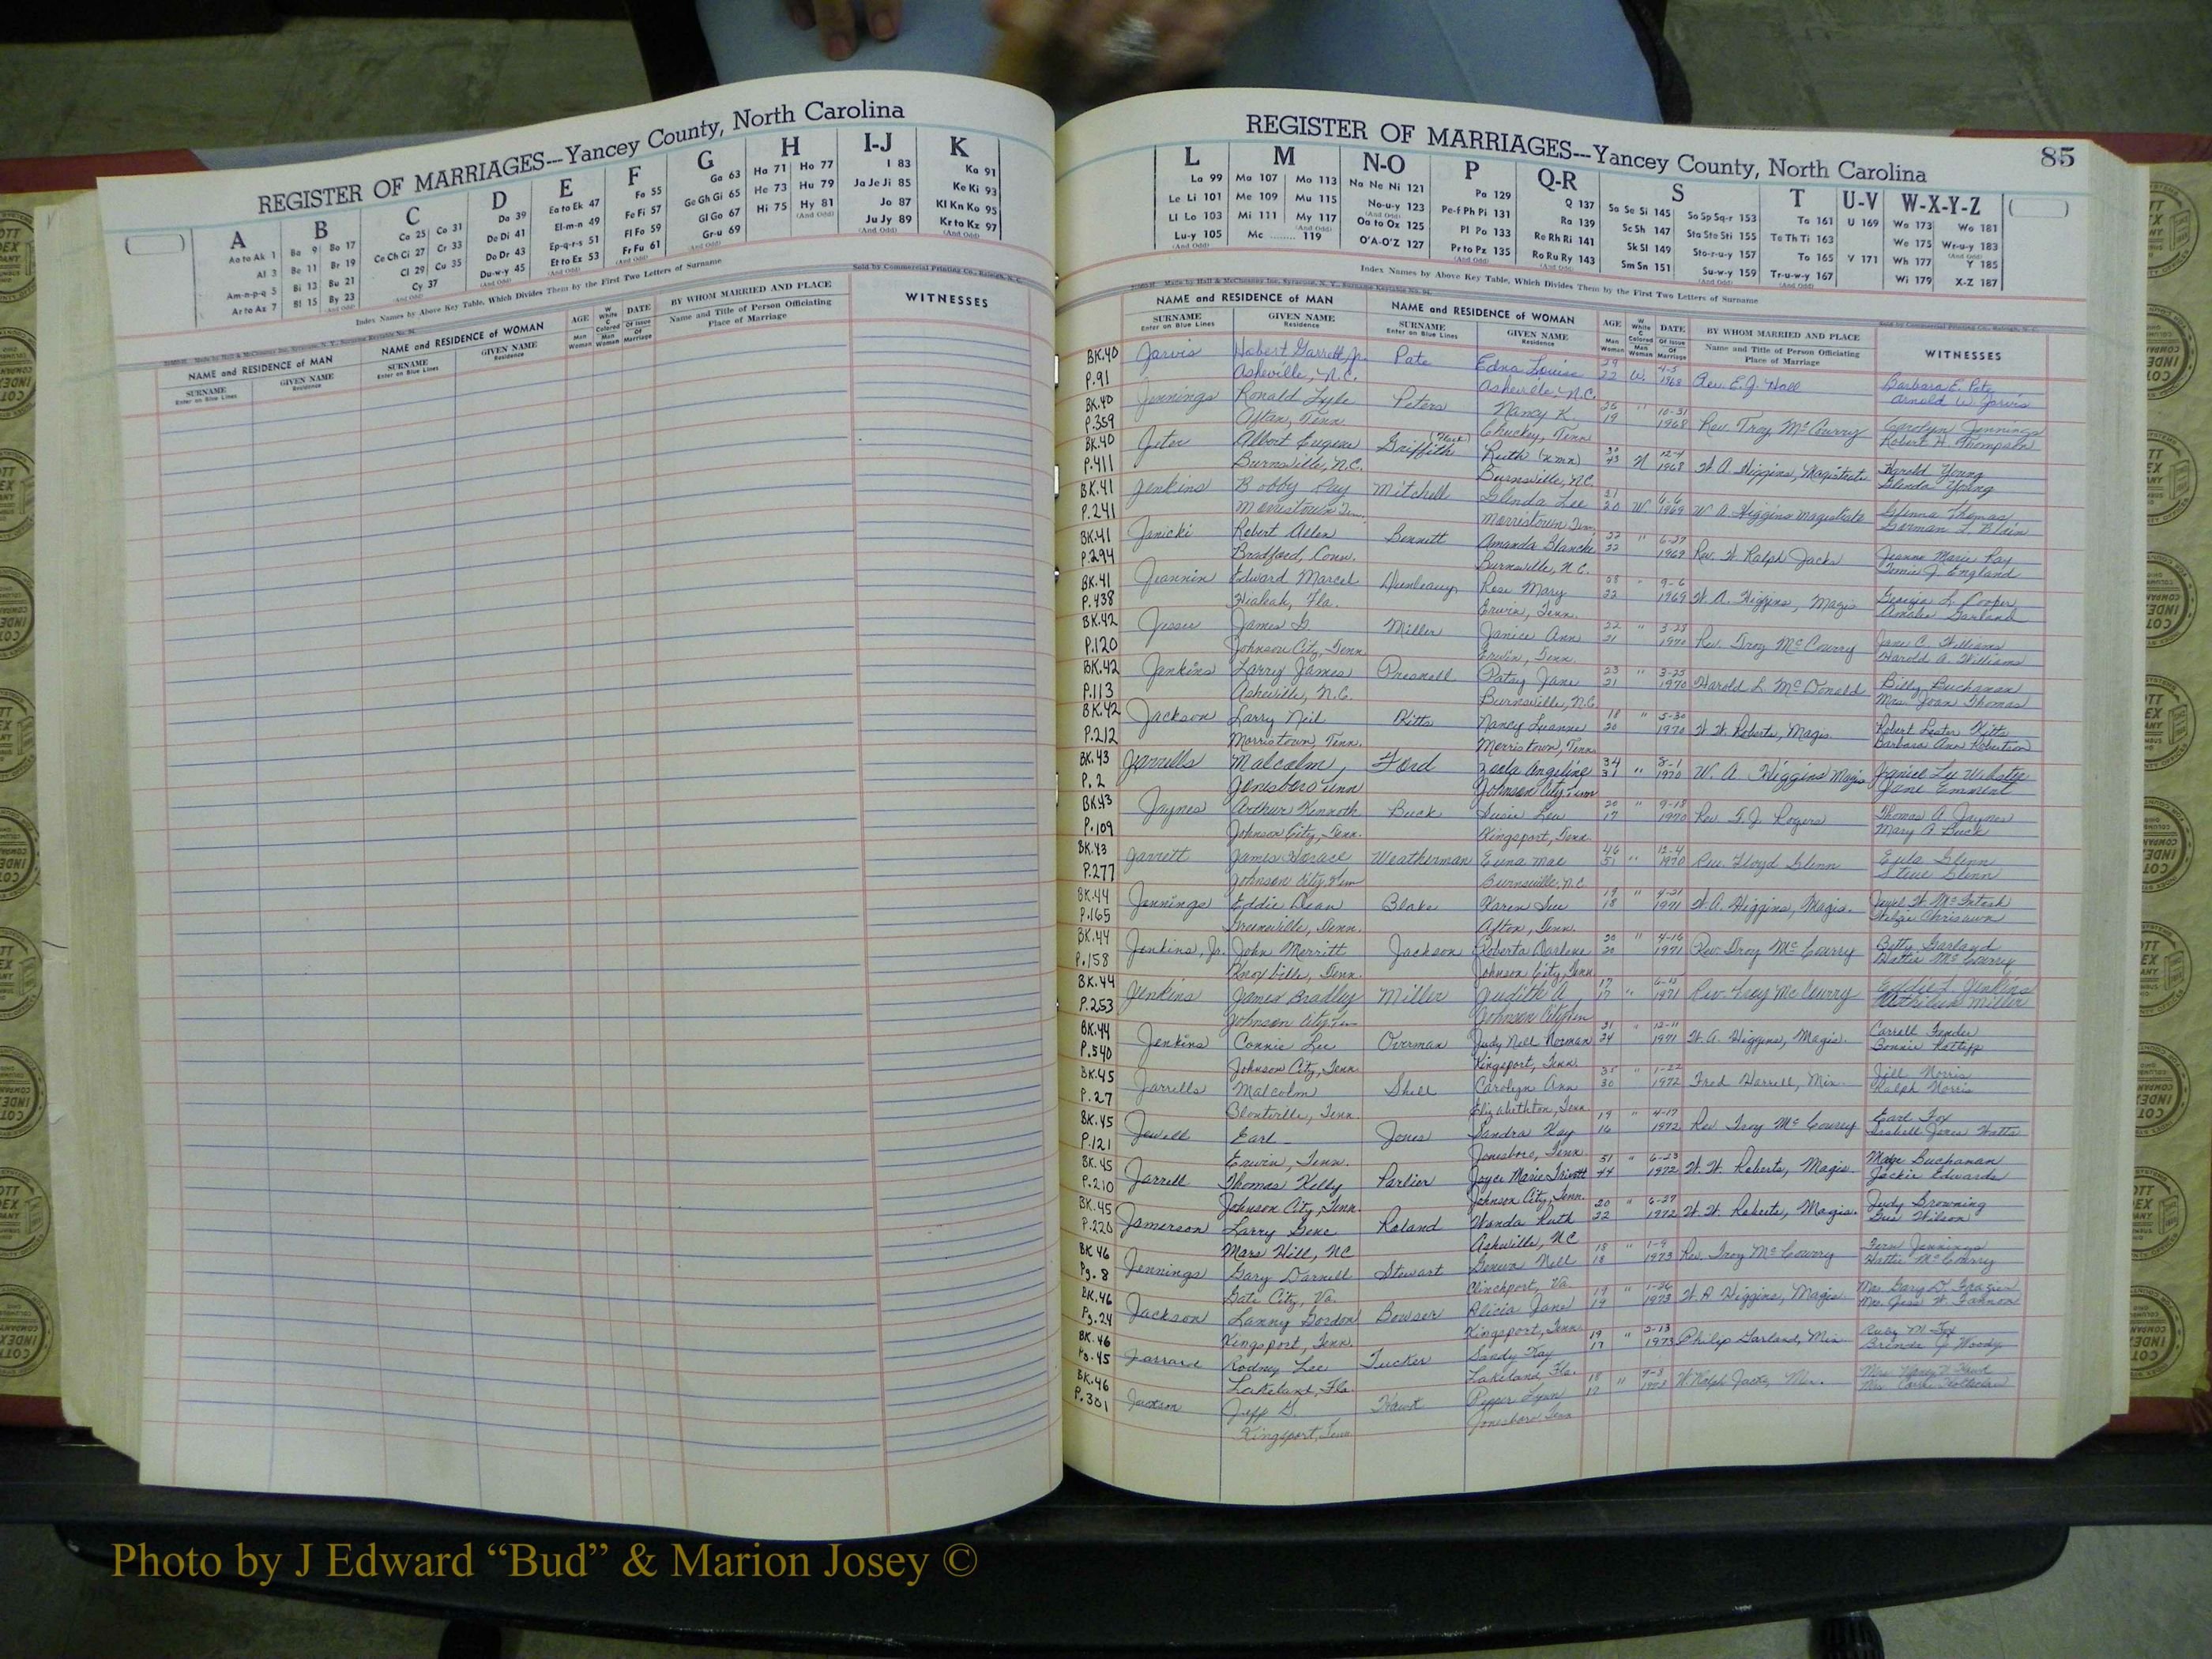 REGISTER OF MARRIAGES---Yancey County, North Carolina
A B C D E F G H I-J K
Aa to Ak 1
Al 3
Am-n-p-q 5
Ar to Az 7
Ba 9 Bo 17
Be 11 Br 19
Bi 13 Bu 21
Bl 15 By 23
(And Odd)
Ca 25 Co 31
Ce Ch Ci 27 Cr 33
Cl 29 Cu 35
Cy 37
(And Odd)
Da 39
De Di 41
Do Dr 43
Du-w-y 45
(And Odd)
Ea to Ek 47
El-m-n 49
Ep-q-r-s 51
Et to Ez 53
(And Odd)
Fa 55
Fe Fi 57
Fl Fo 59
Fr Fu 61
(And Odd)
Ga 63
Ge Gh Gi 65
Gl Go 67
Gr-u 69
(And Odd)
Ha 71 Ho 77
He 73 Hu 79
Hi 75 Hy 81
(And Odd)
I 83
Ja Je Ji 85
Jo 87
Ju Jy 89
(And Odd)
Ka 91
Ke Ki 93
Kl Kn Ko 95
Kr to Kz 97
(And Odd)
Index Names by Above Key Table, Which Divides Them by the First Two Letters of Surname
Made by Hall & McChesney Inc., Syracuse, N. Y., Surname Keytable No. 94.
Sold by Commercial Printing Co., Raleigh, N. C.
NAME and RESIDENCE of MAN
SURNAME Enter on Blue Lines
GIVEN NAME Residence
NAME and RESIDENCE of WOMAN
SURNAME Enter on Blue Lines
GIVEN NAME Residence
AGE Man Woman
W White C Colored Man Woman
DATE Of Issue Of Marriage
BY WHOM MARRIED AND PLACE
Name and Title of Person Officiating
Place of Marriage
WITNESSES
REGISTER OF MARRIAGES---Yancey County, North Carolina
85
L M N-O P Q-R S T U-V W-X-Y-Z
La 99
Le Li 101
Ll Lo 103
Lu-y 105
(And Odd)
Ma 107 Mo 113
Me 109 Mu 115
Mi 111 My 117
(And Odd)
Mc 119
Na Ne Ni 121
No-u-y 123
(And Odd)
Oa to Ox 125
O'A-O'Z 127
Pa 129
Pe-f Ph Pi 131
Pl Po 133
Pr to Pz 135
(And Odd)
Q 137
Ra 139
Re Rh Ri 141
Ro Ru Ry 143
(And Odd)
Sa Se Si 145 So Sp Sq-r 153
Sc Sh 147 Sta Ste Sti 155
Sk Sl 149 Sto-r-u-y 157
Sm Sn 151 Su-w-y 159
(And Odd)
Ta 161
Te Th Ti 163
To 165
Tr-u-w-y 167
(And Odd)
U 169
V 171
Wa 173 Wo 181
We 175 Wr-u-y 183
(And Odd)
Wh 177 Y 185
Wi 179 X-Z 187
Index Names by Above Key Table, Which Divides Them by the First Two Letters of Surname
Made by Hall & McChesney Inc., Syracuse, N. Y., Surname Keytable No. 94.
Sold by Commercial Printing Co., Raleigh, N. C.
NAME and RESIDENCE of MAN
SURNAME Enter on Blue Lines
GIVEN NAME Residence
NAME and RESIDENCE of WOMAN
SURNAME Enter on Blue Lines
GIVEN NAME Residence
AGE Man Woman
W White C Colored Man Woman
DATE Of Issue Of Marriage
BY WHOM MARRIED AND PLACE
Name and Title of Person Officiating
Place of Marriage
WITNESSES
BK.40 Jarvis Hobert Garrett, Jr. Pate Edna Louise 29 4-5 Barbara E. Pate
P.91 Asheville, N.C. Asheville, N.C. 22 W. 1968 Rev. E.J. Hall Arnold W. Jarvis
BK.40 Jennings Ronald Lyle Peters Nancy K. 26 " 10-31 Carolyn Jennings
P.359 Afton, Tenn. Chuckey, Tenn 19 1968 Rev. Troy McCourry Robert H. Thompson
BK.40 Jeter Albert Eugene Griffith Ruth (nmn) 12-4 Harold Young
P.411 Burnsville, N.C. Burnsville, N.C. 43 N 1968 W. A. Higgins, Magistrate Glenda Young
BK.41 Jenkins Bobby Ray Mitchell Glenda Lee 21 6-6 Glenna Thomas
P.241 Morristown Tenn. Morristown Tenn 20 W 1969 W A Higgins Magistrate Gorman L. Blair
BK.41 Janicki Robert Allen Bennett Amanda Blanche 22 " 6-27 Jeanne Marie Ray
P.294 Bradford, Conn. Burnsville, N.C. 22 1969 Rev. W. Ralph Jacks England
BK.41 Jeannin Edward Marcel Dunleavy Rose Mary " 9-6 Georgia L. Cooper
P.438 Hialeah, Fla. Erwin, Tenn. 22 1969 W. A. Higgins, Magis Garland
BK.42 Jessee James G Miller Janice Ann 22 " 3-23 Jane C. Williams
P.120 Johnson City, Tenn Erwin, Tenn. 21 1970 Rev. Troy McCourry Harold A. Williams
BK.42 Jenkins Larry James Presnell Patsy Jane 23 " 3-25 Billy Buchanan
P.113 Asheville, N.C. Burnsville, N.C. 21 1970 Harold L. McDonald Mrs. Joan Thomas
BK.42 Jackson Larry Neil Kitts Nancy Luanne 18 " 5-30 Robert Lester Kitts
P.212 Morristown, Tenn. Morristown, Tenn 20 1970 W. W. Roberts, Magis. Barbara Ann Robertson
BK.43 Jarrells Malcolm Ford Zeola Angeline 34 8-1 Janice Lee Webster
P.2 Jonesboro Tenn Johnson City Tenn 31 " 1970 W. A Higgins Magis Jane Emmert
BK.43 Jaynes Arthur Kenneth Buck Susie Lea 20 " 9-18 Thomas A. Jaynes
P.109 Johnson City, Tenn. Kingsport, Tenn. 17 1970 Rev. Rogers Mary A. Buck
BK.43 Jarrett James Horace Weatherman Euna Mae 46 12-4 Eula Glenn
P.277 Johnson City, Tenn Burnsville, N.C. 51 " 1970 Rev. Floyd Glenn Steve Glenn
BK.44 Jennings Eddie Dean Blake Karen Sue 19 " 4-21 Jewel W. McIntosh
P.165 Greeneville, Tenn. Afton, Tenn. 18 1971 W. A. Higgins, Magis. Chrisawn
BK.44 Jenkins, Jr. John Merritt Jackson Roberta Darlene 20 " 4-16 Betty Garland
P.158 Knoxville, Tenn. Johnson City, Tenn 20 1971 Rev. Troy McCourry Hattie McCourry
BK.44 Jenkins James Bradley Miller Judith A 17 Eddie L. Jenkins
P.253 Johnson City, Tenn Johnson City, Tenn 17 " 1971 Rev Troy McCurry Miller
BK.44 Jenkins Connie Lee Overman Judy Nell Norman 31 " 12-11 Carrell Fender
P.540 Johnson City, Tenn. Kingsport, Tenn. 24 1971 W. A. Higgins, Magis. Bonnie Ratliff
BK.45 Jarrells Malcolm Shell Carolyn Ann 35 " 1-22 Jill Norris
P.27 Blountville, Tenn. Elizabethton, Tenn 30 1972 Fred Harrell, Min. Ralph Norris
BK.45 Jewell Earl Jones Sandra Kay 19 " 4-17 Earl Fox
P.121 Erwin, Tenn. Jonesboro, Tenn 16 1972 Rev Troy McCourry Isabell Jones Watts
BK.45 Jarrell Thomas Kelly Parlier Joyce Marie 51 " 6-23 Buchanan
P.210 Johnson City, Tenn. Johnson City, Tenn. 44 1972 W. W. Roberts, Magis. Jackie Edwards
BK.45 Jamerson Larry Gene Roland Wanda Ruth 20 " 6-29 Judy Browning
P.220 Mars Hill, NC Asheville, NC 22 1972 W. W. Roberts, Magis. Gus Wilson
BK 46 Jennings Gary Darnell Stewart Nell 18 " 1-9 Fern Jennings
Pg. 8 Gate City, Va. Clinchport, Va. 18 1973 Rev. Troy McCourry Hattie McCourry
BK.46 Jackson Lanny Gordon Bowser Alicia Jane 19 " 1-26 Mrs. Gary D. Frazier
Pg.24 Kingsport, Tenn. Kingsport, Tenn. 19 1973 W. A Higgins, Magis Mrs. Jess W. Fannon
BK.46 Jarrard Rodney Lee Tucker Sandy Kay 19 " 2-13 Ruby M. Fox
Pg.45 Lakeland, Fla. Lakeland, Fla. 17 1973 Philip Garland, Min Brenda J. Woody
BK.46 Jackson Jeff G. Pepper Lynn 18 " 9-3
P.301 Kingsport, Tenn Jonesboro, Tenn 17 W. Ralph Jacks, Min.
Photo by J Edward “Bud” & Marion Josey ©